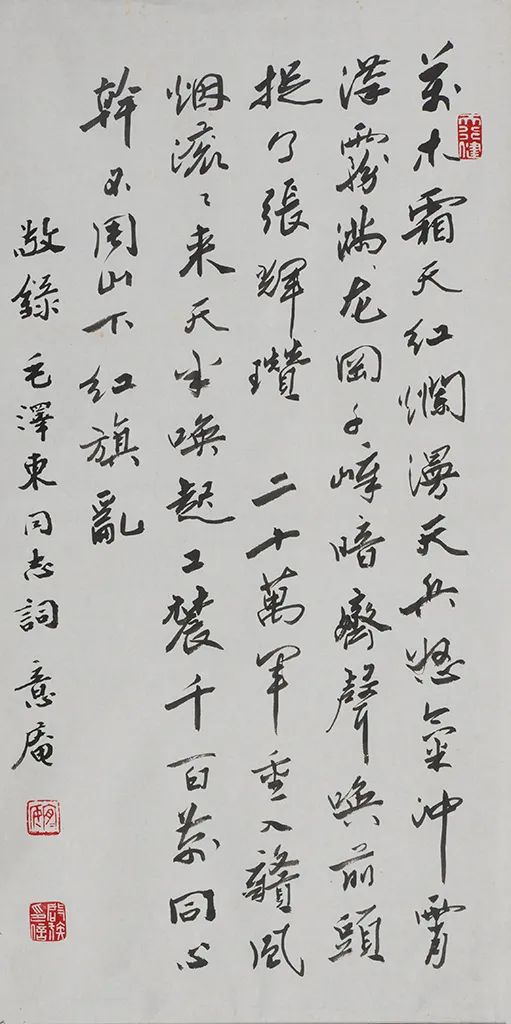 萬木霜天红爛漫天兵怒氣冲霄
漢霧滿龙岡千嶂暗齊聲喚前頭
捉了張輝瓚 二十萬軍重入贛風
烟滚々来天半喚起工農千百萬同心
幹不周山下红旗亂
敬錄毛澤東同志詞 意庵